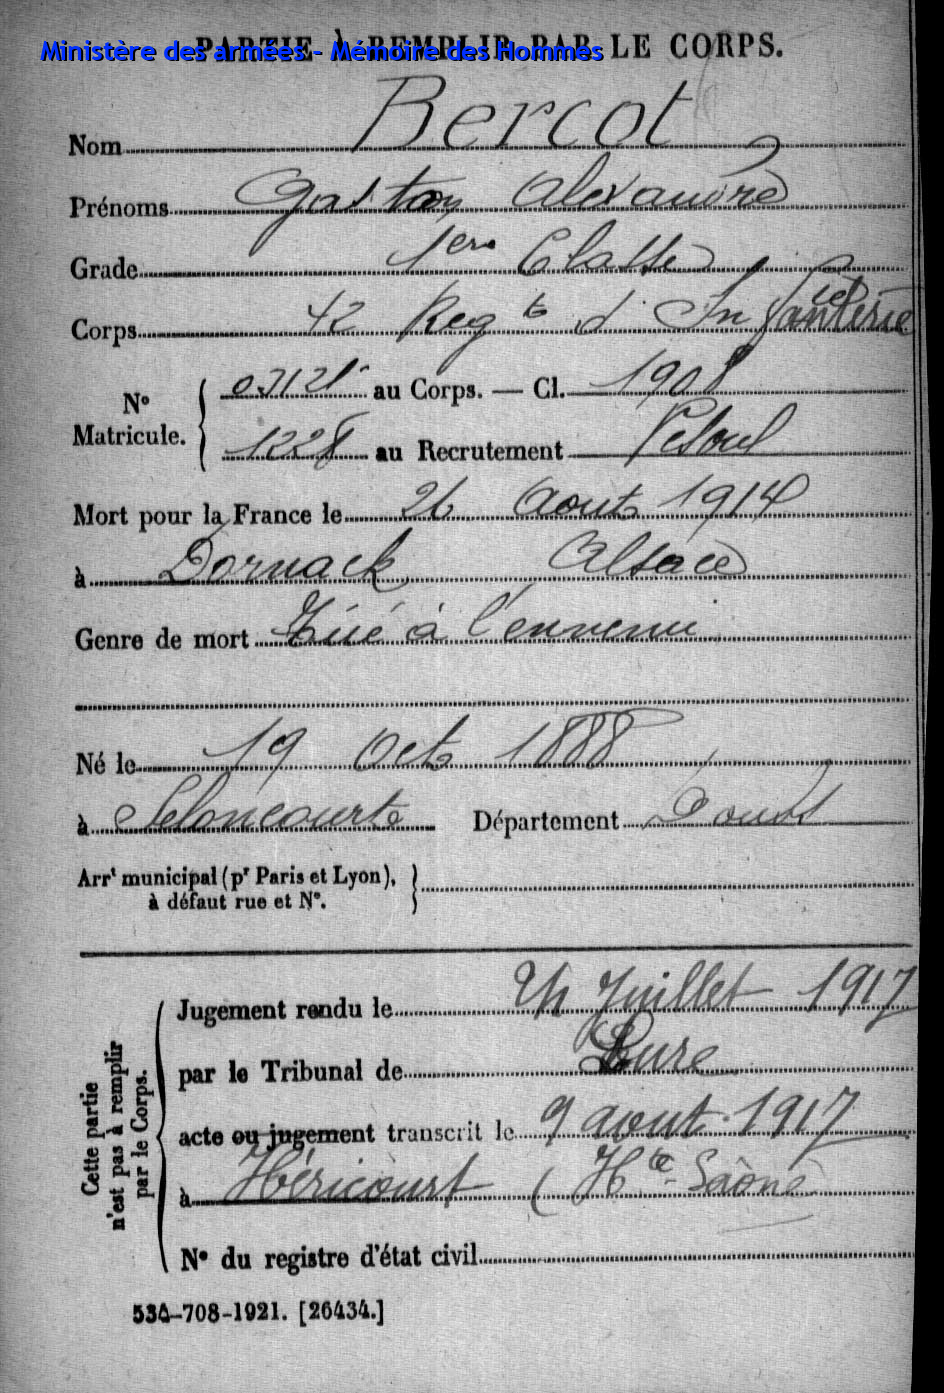 PARTIE À REMPLIR PAR LE CORPS.
Ministère des armées - Mémoire des Hommes
Nom Bercot
Prénoms Gaston Alexandre
Grade 1ere Classe
Corps 42 Regt d'Infanterie
N° Matricule. au Corps. — Cl. 1908
1228 au Recrutement Vesoul
Mort pour la France le 26 Aout 1914
à Dornack Alsace
Genre de mort Tué à l'ennemi
Né le 19 Oct 1888
à Seloncourt Département Doubs
Arrt municipal (pr Paris et Lyon),
à défaut rue et N°.
Cette partie
n'est pas à remplir
par le Corps.
Jugement rendu le Juillet 1917
par le Tribunal de Lure
acte ou jugement transcrit le 9 aout 1917
à Héricourt (Hte-Saône
N° du registre d'état civil
534-708-1921. [26434.]